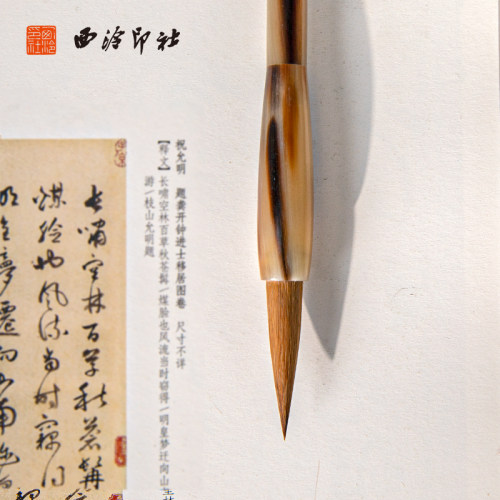 西泠印社
祝允明 题龚开钟进士移居图卷 尺寸不详
【释文】长啸空林百草秋茶髯一煤脸也风流当时窃得一明皇梦迁向山
游一枝山允明题
长啸空林百草秋茶髯
煤脸也风流当时窃得
明皇梦迁向